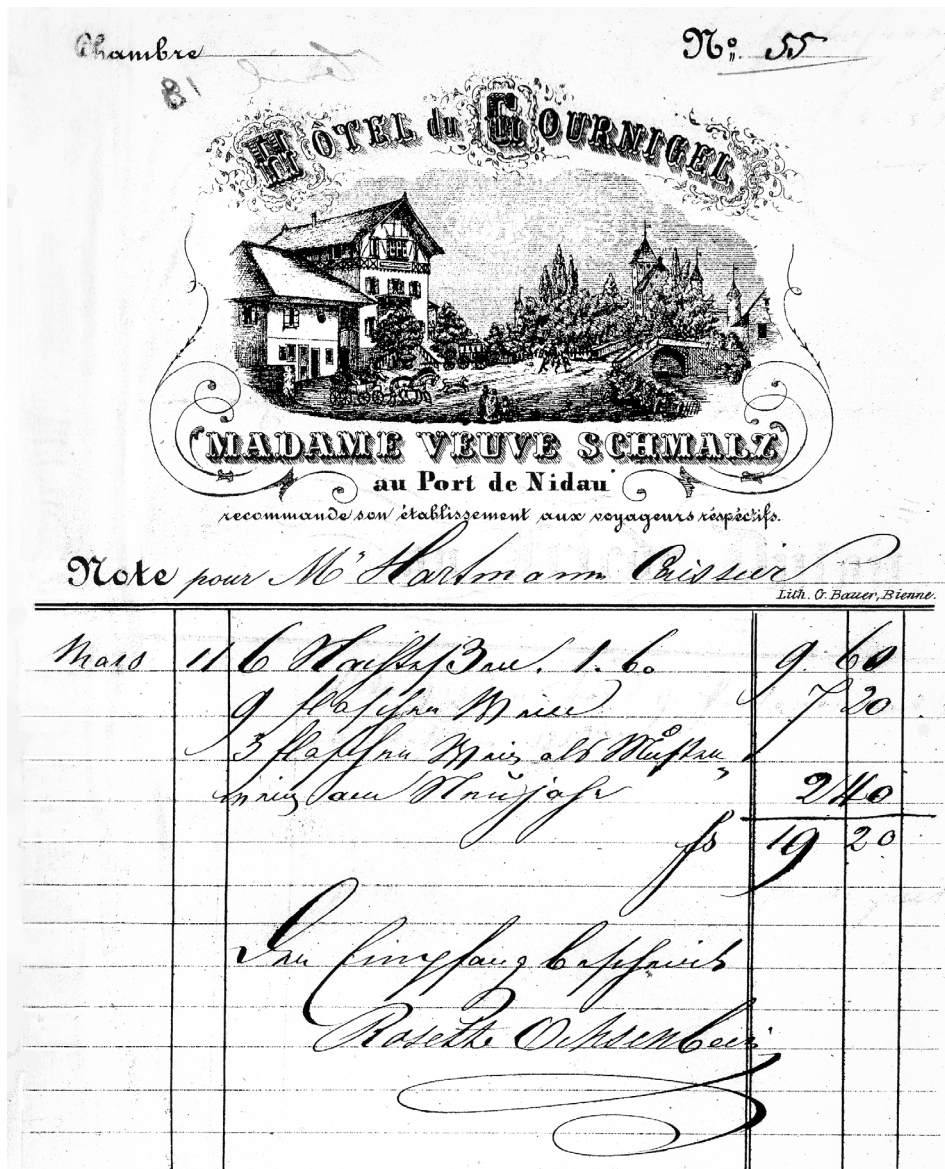 Chambre Nº 55
18
HÔTEL du GOURNIGEL
MADAME VEUVE SCHMALZ
au Port de Nidau
recommande son établissement aux voyageurs réspéctifs.
Note pour Mr Hartmann
Lith. G. Bauer, Bienne.
Mars 11 6 Nachtessen. 1. 60 9. 60
9 flaschen Wein 7 20
3 flaschen Wein als
wein am Neujahr 2 40
fs 19 20
Den Empfang bescheint
Rosette Ochsenbein